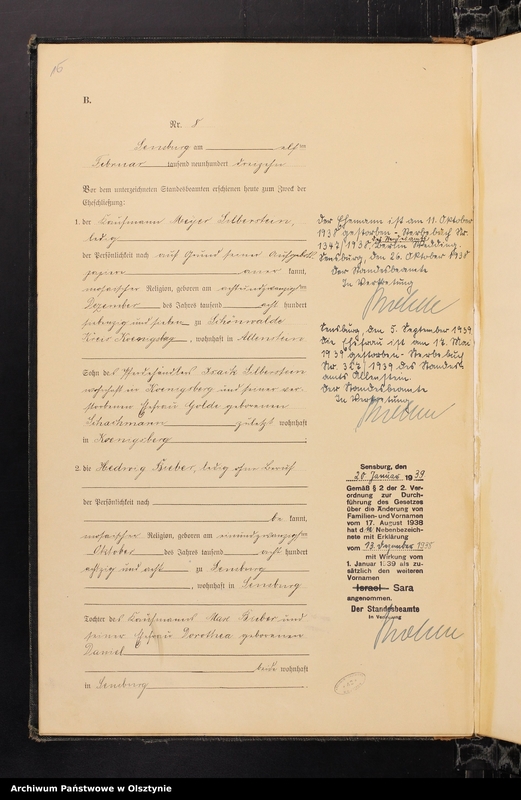 B.
Nr. 8
Sensburg am elften
Februar tausend neunhundert dreizehn
Vor dem unterzeichneten Standesbeamten erschienen heute zum Zweck der
Eheschließung:
1. der Kaufmann Meyer Silberstein,
ledig
der Persönlichkeit nach auf Grund seiner Aufgebots
papiere aner kannt,
mosaischer Religion, geboren am
Dezember des Jahres tausend acht hundert
siebenzig und sieben zu Schönwalde
Kreis Koenigsberg, wohnhaft in Allenstein
Sohn des Pferdehändlers Isaak Silberstein
wohnhaft in Koenigsberg und seiner ver
storbenen Ehefrau Golde geborenen
Schachmann zuletzt wohnhaft
in Koenigsberg.
2. die Hedwig Bieber, ledig ohne Beruf
der Persönlichkeit nach
be kannt,
mosaischer Religion, geboren am neunundzwanzigsten
Oktober des Jahres tausend acht hundert
achtzig und acht zu Sensburg
, wohnhaft in Sensburg
Tochter des Kaufmanns Max Bieber und
seiner Ehefrau Dorothea geborenen
Daniel
beide wohnhaft
in Sensburg.
Der Ehemann ist am 11. Oktober
1938 gestorben - Sterbebuch Nr.
des Standesamts
1347/1938 Berlin Wedding.
Sensburg, den 26. Oktober 1938
Der Standesbeamte
In Vertretung
Sensburg, den 5. September 1939
Die Ehefrau ist am 17. Mai
1939 gestorben - Sterbebuch
Nr. 327/1939 des Standes
amts Allenstein.
Der Standesbeamte
In Vertretung
Sensburg, den
20. Januar 1939
Gemäß § 2 der 2. Ver-
ordnung zur Durch-
führung des Gesetzes
über die Änderung von
Familien- und Vornamen
vom 17. August 1938
hat d ie Nebenbezeich-
nete mit Erklärung
vom 13. Dezember 1938
mit Wirkung vom
1. Januar 1939 als zu-
sätzlich den weiteren
Vornamen
Israel Sara
angenommen.
Der Standesbeamte
In Vertretung
Archiwum Państwowe w Olsztynie